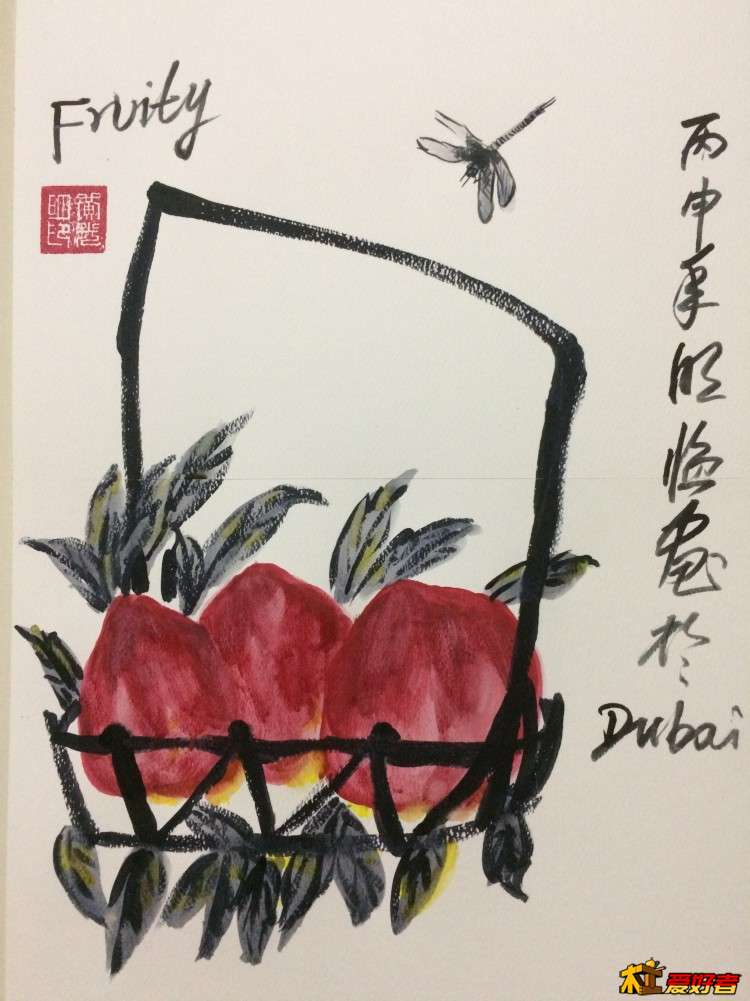 Fruity
丙申年明临画於
Dubai
爱好者